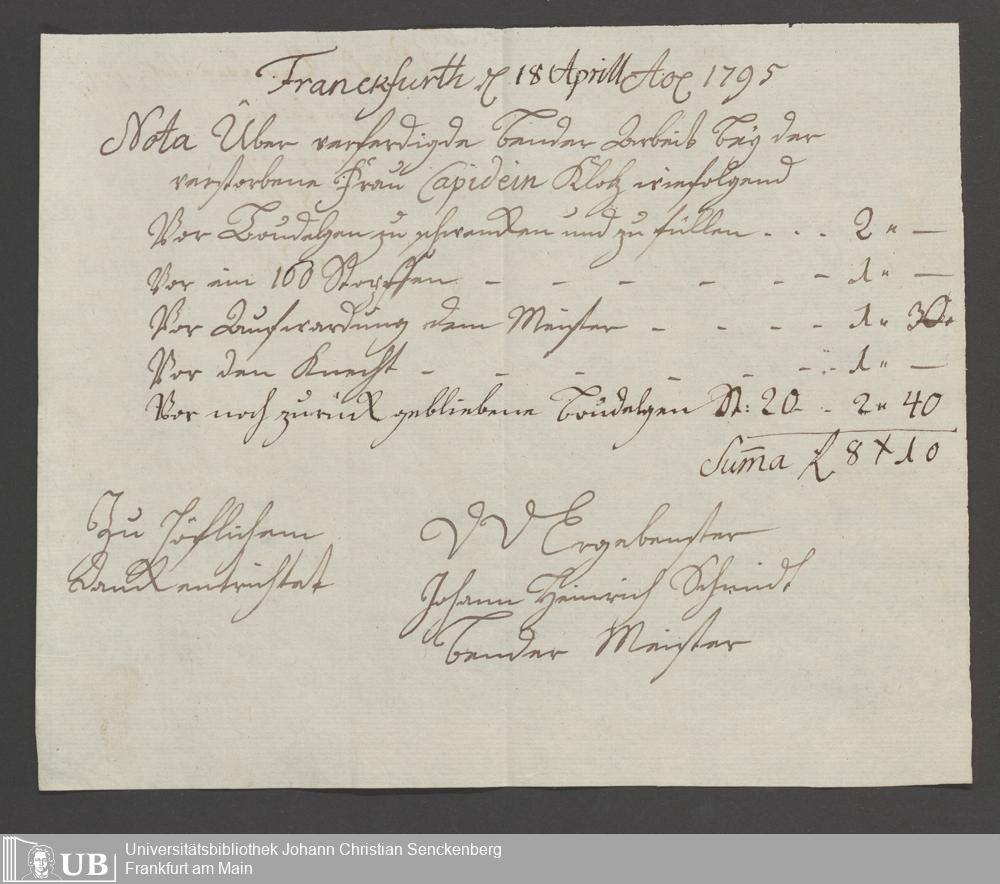 Franckfurth d 18 Aprill Ao 1795
Nota Über verferdigde bender Arbeit beÿ der
verstorbene Frau Capidein Klotz wie folgend
Vor Boudelgen zu schwencken und zu füllen - - - 2 " —
Vor ein 100 Stopffen - - - - - - 1 " —
Vor Aufwardung dem Meister - - - - 1 " 30
Vor den Knecht - - - - - - 1 " —
Vor noch zurück gebliebene Boudelgen St: 20 - - 2 " 40
Sum̄a f 8 x 10
Zu höflichem
Danck entrichtet
Ergebenster
Johann Heinrich Schmidt
bender Meister
UB
Universitätsbibliothek Johann Christian Senckenberg
Frankfurt am Main